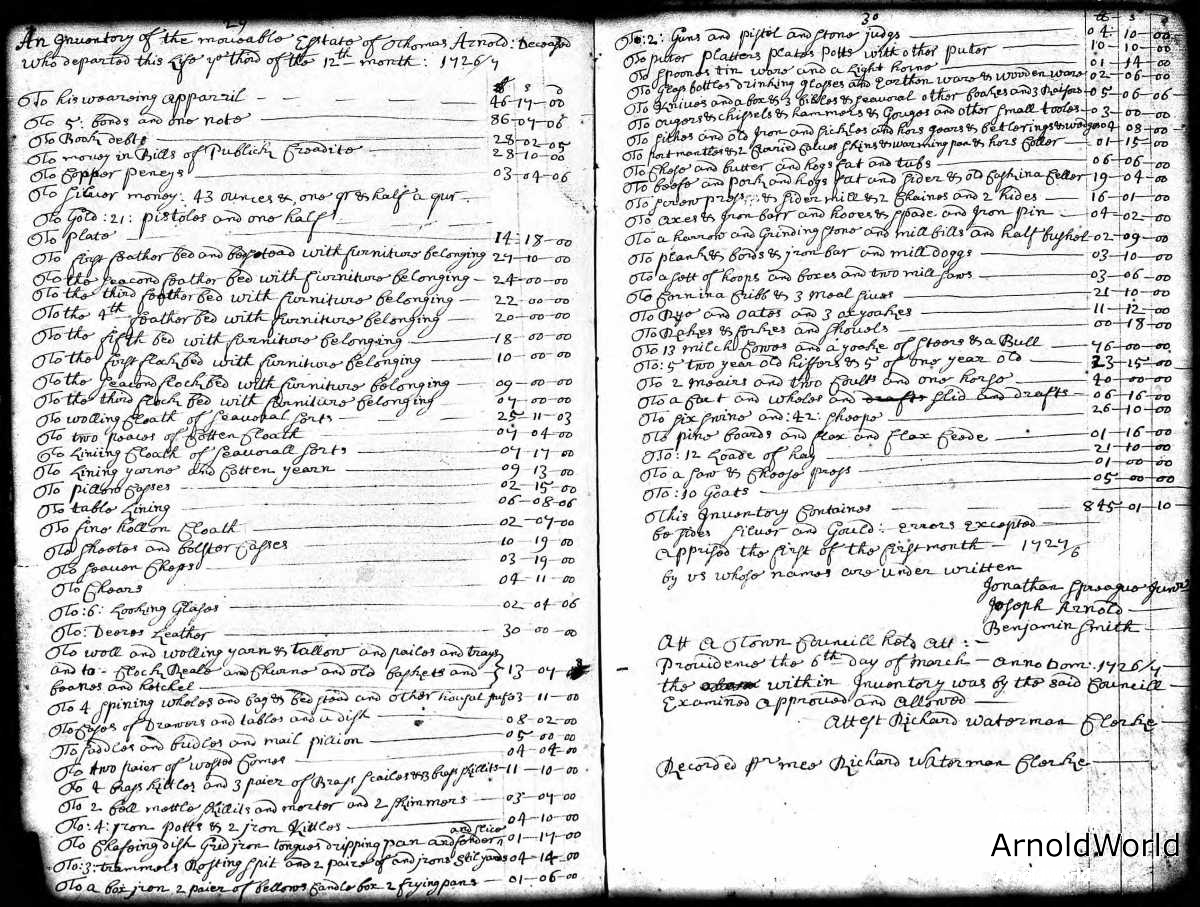 29
An Inventory of the moveable Estate of Thomas Arnold: Deceased
who departed this Life ye third of the 12th month: 1726/7
£ s d
To his weareing apparril 46-17-00
To 5: bonds and one note 86-07-06
To Book debts 28-02-05
To money in Bills of Publick Creadite 28-10-00
To Copper Peneys 03-04-06
To Silver money: 43 ounces & one qr & half a qur
To Gold: 21: pistoles and one half
To Plate 14-18-00
To first feather bed and bedstead with furniture belonging 27-10-00
To the seacond feather bed with furniture belonging 24-00-00
To the third feather bed with furniture belonging 22-00-00
To the 4th feather bed with furniture belonging 20-00-00
To the fifth bed with furniture belonging 18-00-00
To the first flock bed with furniture belonging 10-00-00
To the seacond flock bed with furniture belonging 09-00-00
To the third flock bed with furniture belonging 07-00-00
To wolling Cloath of seavoral sorts 25-11-03
To two peaces of Cotten Cloath 07-04-00
To Lining Cloath of seavorall sorts 07-17-00
To Lining yarne and Cotten yearn 09-13-00
To pillow Casses 02-15-00
To table Lining 06-08-06
To fine hollon Cloath 02-07-00
To sheetes and bolster Casses 10-19-00
To seaven Chests 03-19-00
To Chears 04-11-00
To: 6: Looking Glases 02-04-06
To: Deeres Leather 30-00-00
To woll and wolling yarn & tallow and pailes and trays
and to Clock Reale and Churne and old baskets and 13-07-
beanes and hetchel
To 4 spining wheles and bag & bedstead and other housful stufe 03-11-00
To Cases of Drawers and tables and a dish 08-02-00
To saddles and bridles and mail pillion 05-00-00
To two paier of wosted Comes 04-04-00
To 4 brass kittles and 3 paier of Brass scailes & 3 brass skillits 11-10-00
To 2 bell mettle skillits and morter and 2 skimmers 03-07-00
To: 4: iron Potts & 2 iron Kittles 04-10-00
and slice
To Chafeing dish Gridiron tongues dripping pan and fender 01-17-00
To: 3: trammels Rosting spit and 2 paire of andjrons stilyards 04-14-00
To a box jron 2 paier of bellows Candle box 2 frying pans 01-06-00
30
£ s d
To: 2: Guns and pistol and stone judgs 04:10-00
To puter platters plates Potts with other puter 10-10-00
To spoones tin ware and a Light horne 01-14-00
To Glass bottles drinking glasses and Earthen ware & wooden ware 02-06-00
To Knives and a box & 3 bibles & seavoral other bookes and 3 Rasors 05-06-06
To augers & chissels & hammers & Gouges and other small tooles 03-00-00
To sithes and old Iron and sickles and hors gears & betterings & wedges 04-08-00
To portmantles & 2 Curried Calves skins & warming pan & hors Coller 01-15-00
To Chese and butter and hogs fat and tubs 06-06-00
To beefe and Pork and hogs fat and sider & old Cask in a Celler 19-04-00
To screw Press & sider mill & 2 Chaines and 2 hides 16-01-00
To Axes & Iron barr and hooes & spade and Iron pin 04-02-00
To a harrow and Grinding stone and mill bills and half bushel 02-09-00
To plank & bords & iron bar and mill doggs 03-10-00
To a sett of hoops and boxes and two mill saws 03-06-00
To Corn in a Cribb & 3 Meal sives 21-10-00
To Rye and oates and 3 ox yoakes 11-12-00
To Rakes & forkes and shovels 00-18-00
To 13 milch Cowes and a yoake of steers & a Bull 76-00-00
To: 5 two year old hiffers & 5 of one year old 23-15-00
To 2 meairs and two Coults and one horse 40-00-00
To a Cart and wheles and slid and drafts 06-16-00
To six swine and: 42: sheepe 26-10-00
To pine boards and flax and flax seede 01-16-00
To: 12 Loade of hay 21-10-00
To a saw & Cheese Press 01-00-00
To: 10 Goats 05-00-00
This Inventory Containes 845-01-10
besides silver and Gould: errors Excepted
Apprised the first of the first month 1727/6
by us whose names are under written
Jonathan Sprague Junr
Joseph Arnold
Benjamin Smith
Att A Town Councill held Att:-
Providence the 6th day of March Anno Dom: 1726/7
the with in Inventory was by the said Councill
Examined Approved and Allowed
Attest Richard Waterman Clerke
Recorded Pr mee Richard Waterman Clerke
ArnoldWorld